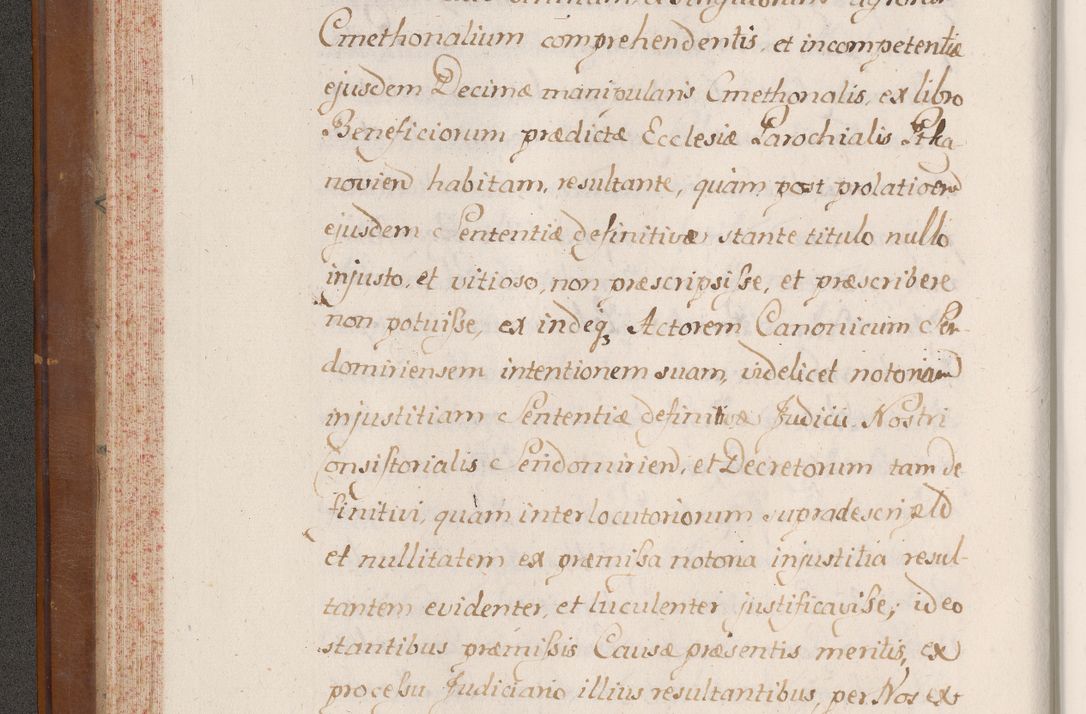 omnium, et singulorum agrorum
Cmethonalium comprehendentis, et incompetentiæ
ejusdem Decimæ manipularis Cmethonalis, ex libro
Beneficiorum prædictæ Ecclesiæ Parochialis Ptka-
novien habitam, resultante, quam post prolationem
ejusdem Sententiæ definitivæ stante titulo nullo
injusto, et vitioso, non præscripsisse, et præscribere
non potuisse, ex indeq Actorem Canonicum Sen-
domiriensem intentionem suam, videlicet notoriam
injustitiam Sententiæ definitivæ Judicii Nostri
Consistorialis Sendomirien, et Decretorum tam de
finitivi, quam interlocutoriorum supradescript
et nullitatem ex præmissa notoria injustitia resul-
tantem evidenter, et luculenter justificavisse, ideo
stantibus præmissis Causæ præsentis meritis, ex
processu Judiciario illius resultantibus, per Nos ex